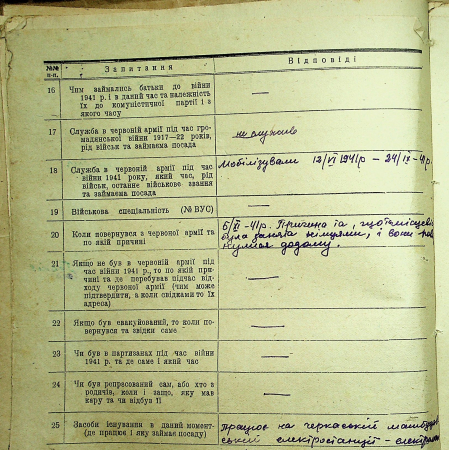 №№ п.п.
Запитання
Відповіді
16 Чим займались батьки до війни
1941 р. і в даний час та належність
їх до комуністичної партії і з
якого часу
—
17 Служба в червоній армії під час гро-
мадянської війни 1917—22 років,
рід військ та займаєма посада
не служив
18 Служба в червоній армії під час
війни 1941 року, який час, рід
військ, останнє військове звання
та займаєма посада
Мобілізували 12/VI 1941р — 24/IX-41р.
19 Військова спеціальність (№ ВУС)
—
20 Коли повернувся з червоної армії та
по якій причині
6/XI-41р. Причина та, що
була занята німцями, і вони
додому.
21 Якщо не був в червоній армії під
час війни 1941 р., то по якій при-
чині та де перебував підчас від-
ходу червоної армії (чим може
підтвердити, а коли свідками то їх
адреса)
—
22 Якщо був евакуйований, то коли по-
вернувся та звідки саме
—
23 Чи був в партизанах під час війни
1941 р. та де саме і який час
—
24 Чи був репресований сам, або хто з
родичів, коли і защо, яку мав
кару та чи відбув її
—
25 Засоби існування в даний момент-
(де працює і яку займає посаду)
Працює на черкаській
ській електростанції —